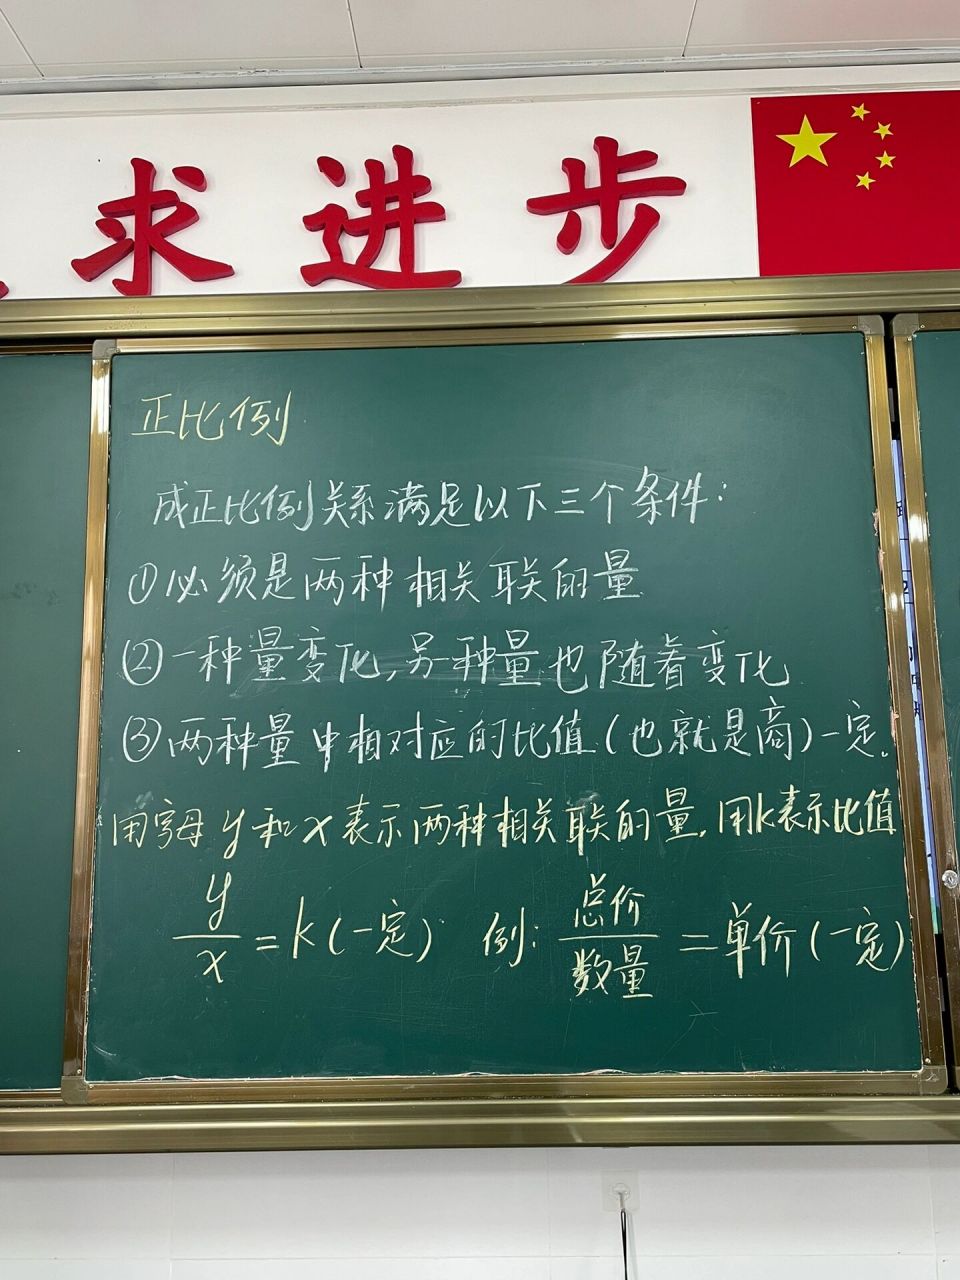 求进步
正比例
成正比例关系满足以下三个条件：
①必须是两种相关联的量
②一种量变化,另一种量也随着变化
③两种量中相对应的比值(也就是商)一定.
用字母y和x表示两种相关联的量.用k表示比值
y/x=k(一定) 例:总价/数量=单价(一定)